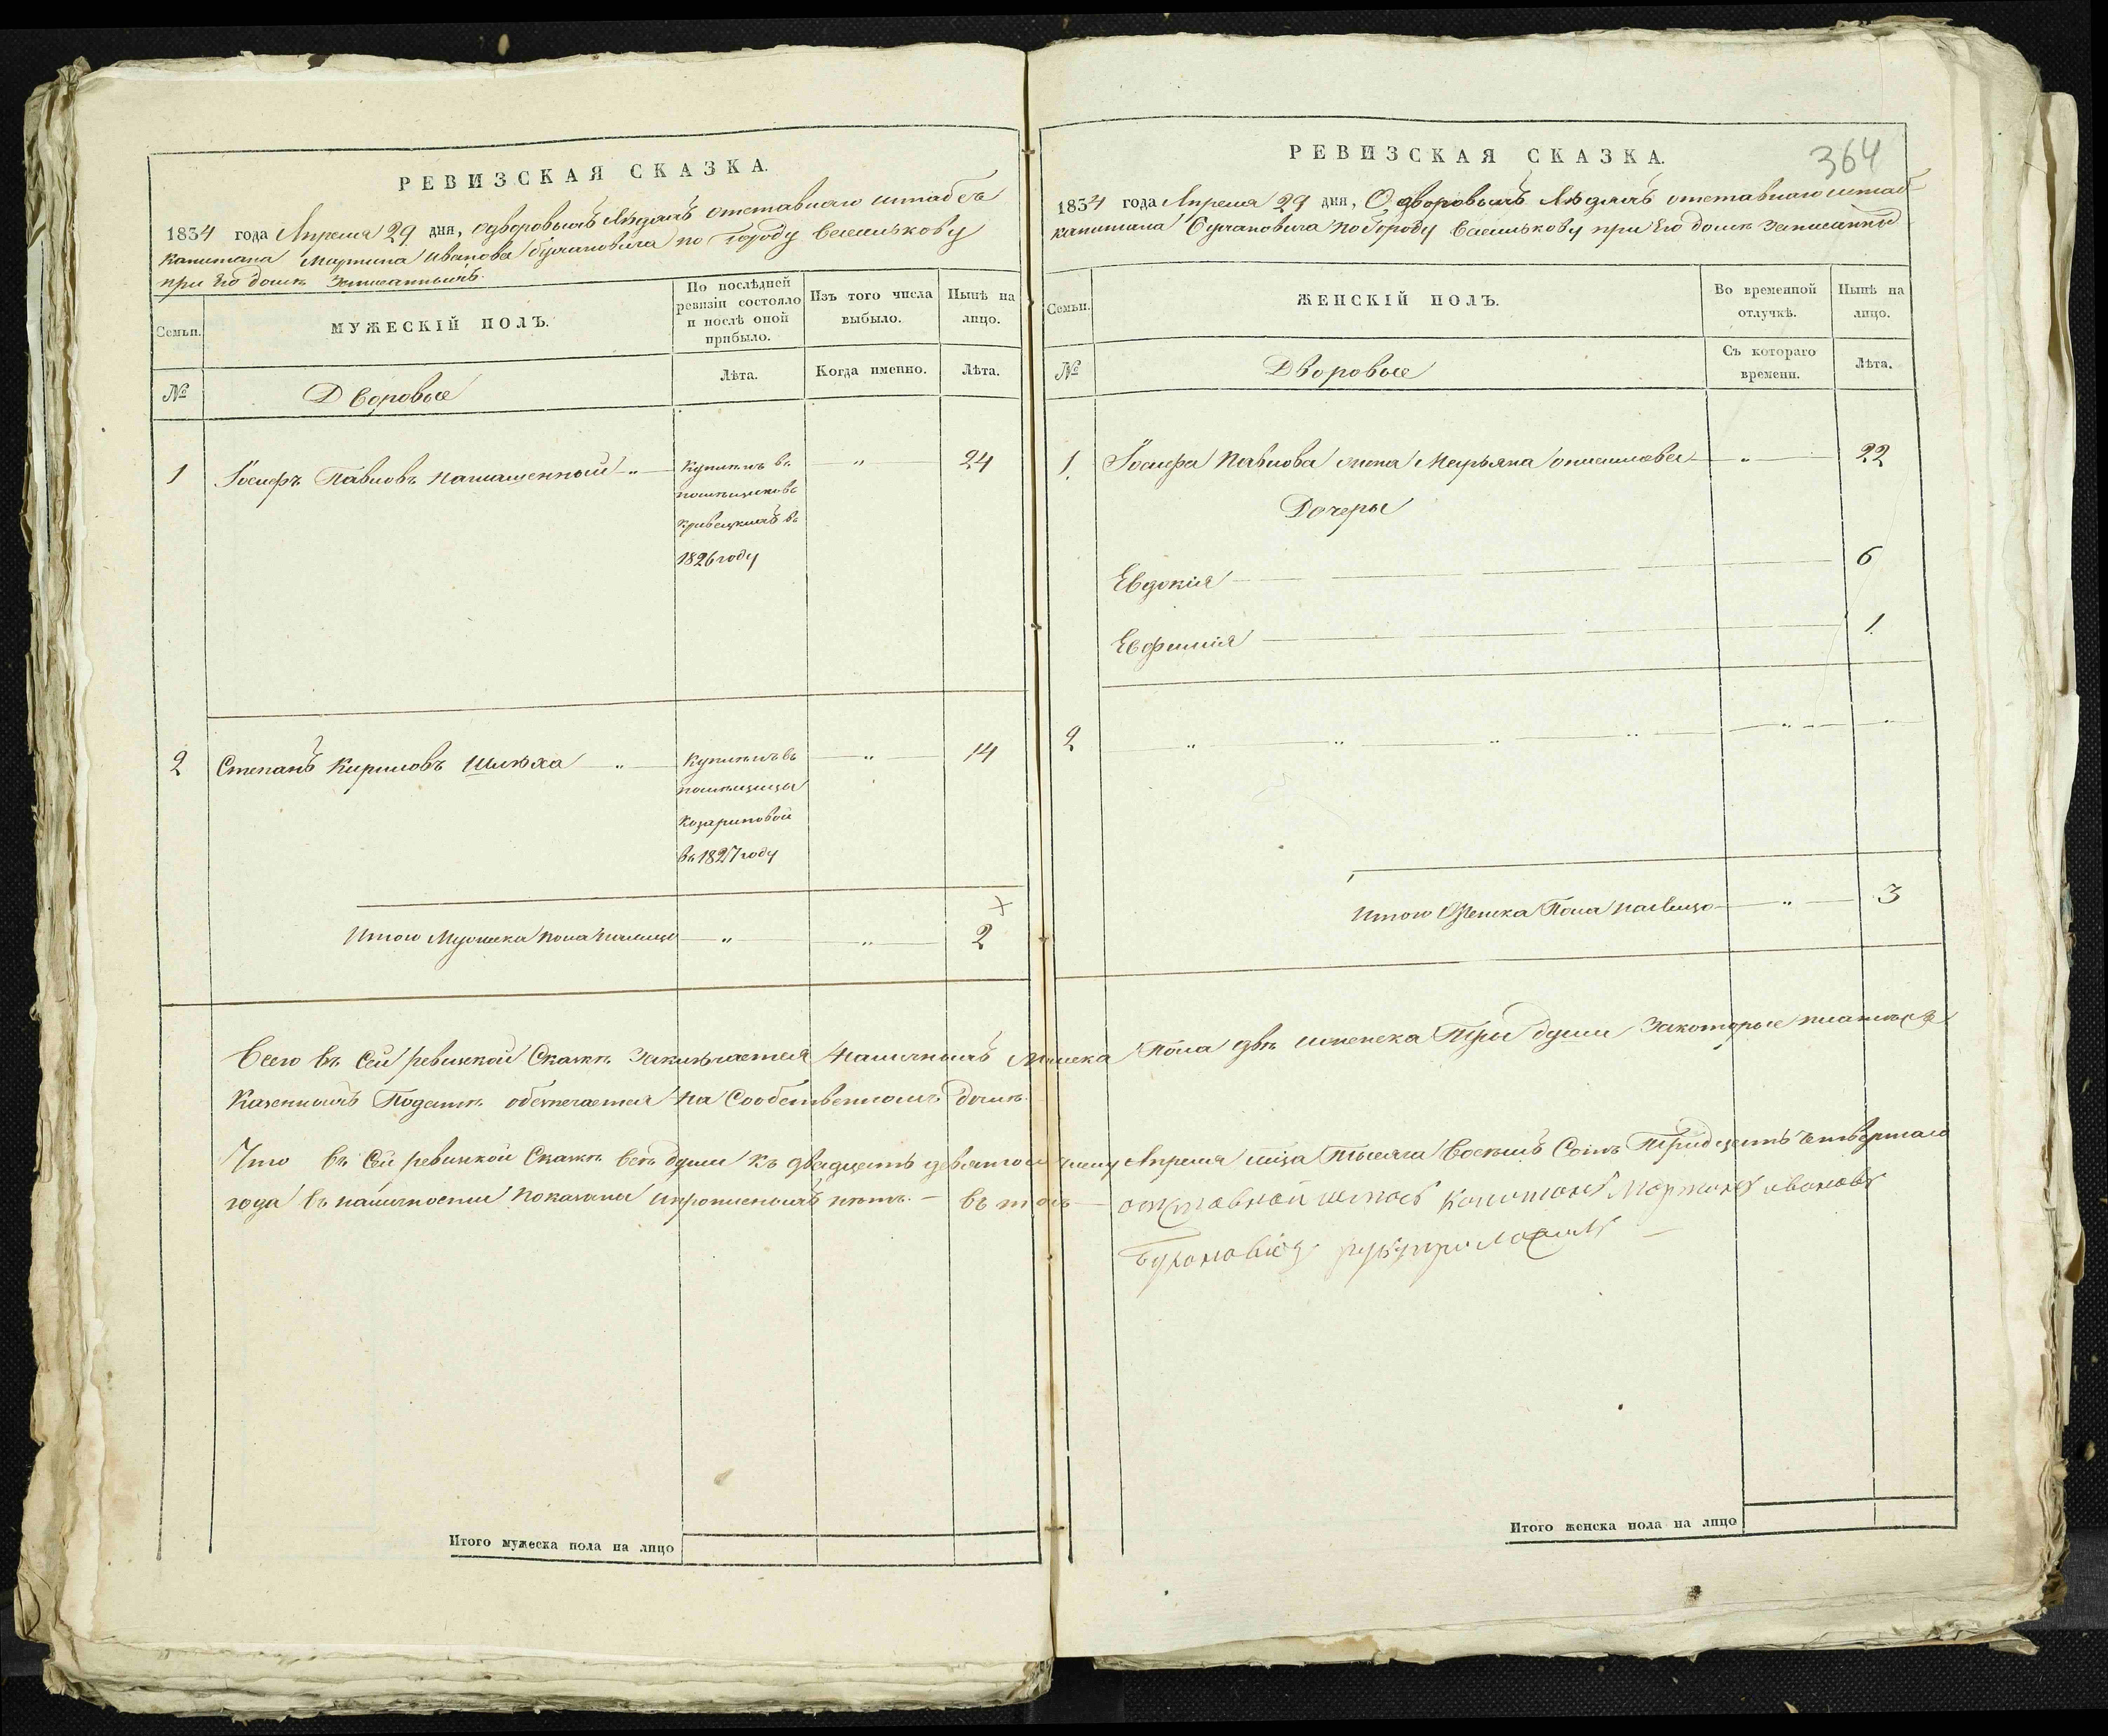 РЕВИЗСКАЯ СКАЗКА.
1834 года Апреля 29 дня, одворовымъ людямъ отставнаго штабсъ
капитана Мартина Иванова Буланова по городу Василькову
при его доме записаннымъ.
Семьи.
МУЖЕСКІЙ ПОЛЪ.
По послѣдней
ревизіи состояло
и послѣ оной
прибыло.
Изъ того числа
выбыло.
Нынѣ на
лицо.
№
Дворовые
Лѣта.
Когда именно.
Лѣта.
1 Іосифъ Павловъ „ Купленъ въ „ 24
помѣщиковъ
въ
1826 году
2 Степанъ Кириловъ Шлѣха „ Купленъ въ „ 14
помѣщицы
Козариновой
въ 1827 году
Итого Мужеска пола налицо „ „ 2
Всего въ сей ревизкой Сказкѣ заключается наличныхъ мужеска
Казенныхъ Податѣ обезпечается на Собственномъ домѣ
Что въ сей ревизкой Сказкѣ всѣ души къ двадцать девятому числу
года въ наличности показаны ипрописныхъ нѣтъ. – въ томъ
Итого мужеска пола на лицо
РЕВИЗСКАЯ СКАЗКА.
364
1834 года Апреля 29 дня, О дворовымъ людямъ отставнаго штаб
капитана по городу Василькову при его домѣ записанны
Семьи.
ЖЕНСКІЙ ПОЛЪ.
Во временной
отлучкѣ.
Нынѣ на
лицо.
№
Дворовые
Съ котораго
времени.
Лѣта.
1. Іосифа Павлова жена Марьяна „ 22
Дочеры
Евдокія 6
Евфимія 1.
2 „ „ „ „ „ „
Итого Женска Пола налицо „ 3
Пола двѣ иженска Три души закоторые платежъ
Апреля мца Тысяча Восемь Сотъ Тридцать четвертаго
отставной штабсъ Капитанъ Мартинъ Ивановъ
руку приложилъ
Итого женска пола на лицо